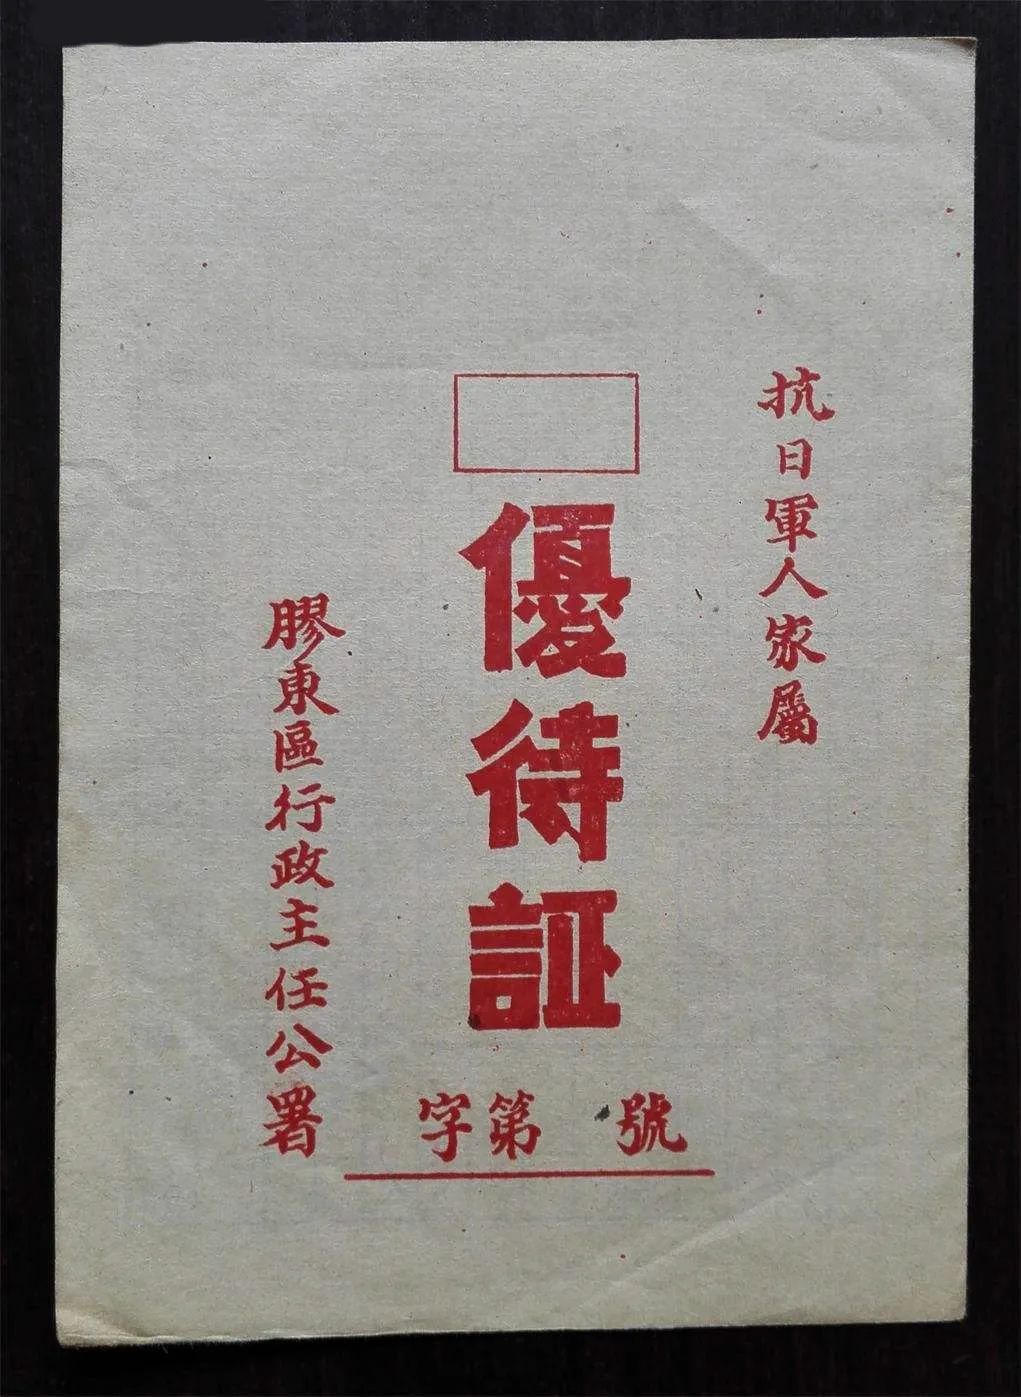 抗日軍人家屬
優待証
字第 號
膠東區行政主任公署